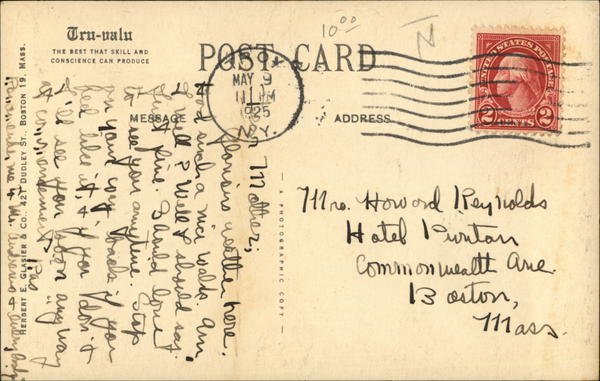 Tru-valu
THE BEST THAT SKILL AND
CONSCIENCE CAN PRODUCE
POST CARD
10.00
N
MAY 9
11 PM
1925
N.Y.
UNITED STATES POSTAGE
2 CENTS 2
MESSAGE
ADDRESS
HERBERT E. GLASIER & CO., 427 DUDLEY ST., BOSTON 19, MASS.
— A PHOTOGRAPHIC COPY —
Mother;
weather here.
Had such a nice walk. Am
I well? Well I should say.
Just fine. Would love
to see you anytime. Stop
on your way back if you
feel like it, & if you don't
I'll see you soon anyway
at commencement.
Mrs. Howard Reynolds
Hotel Puritan
Commonwealth Ave.
Boston,
Mass.